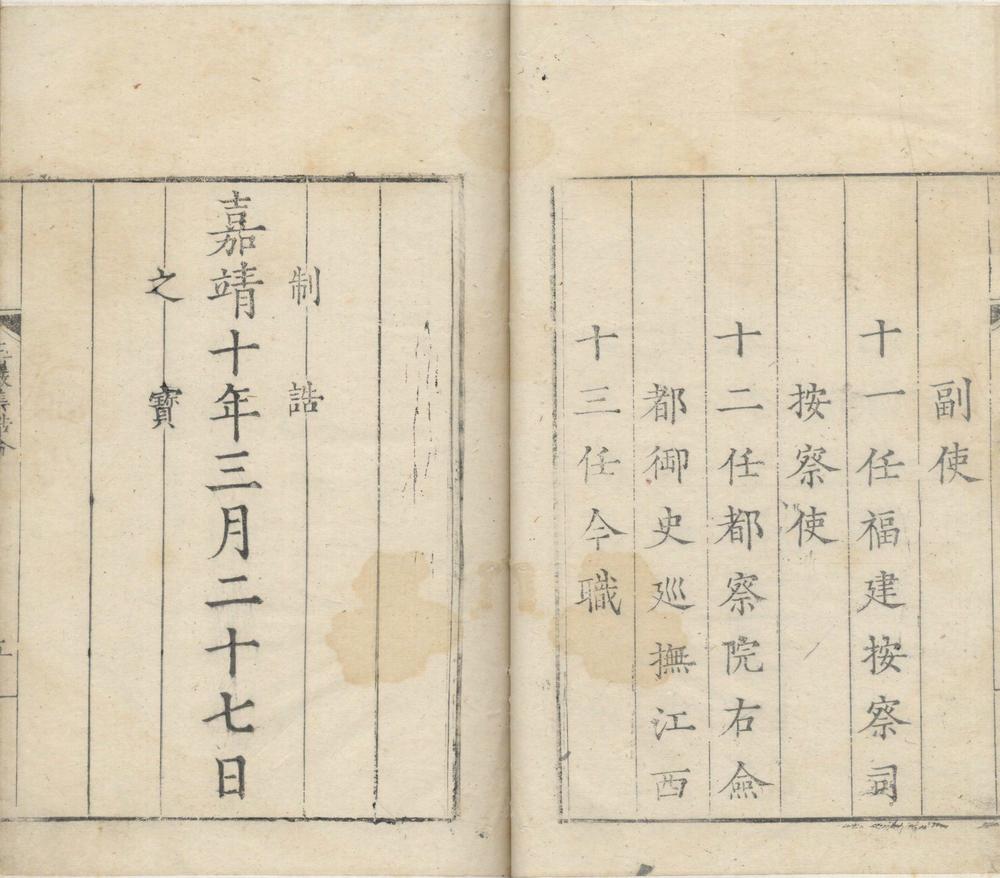 副使
十一任福建按察司
按察使
十二任都察院右僉
都御史巡撫江西
十三任今職
制誥
嘉靖十年三月二十七日
之寶